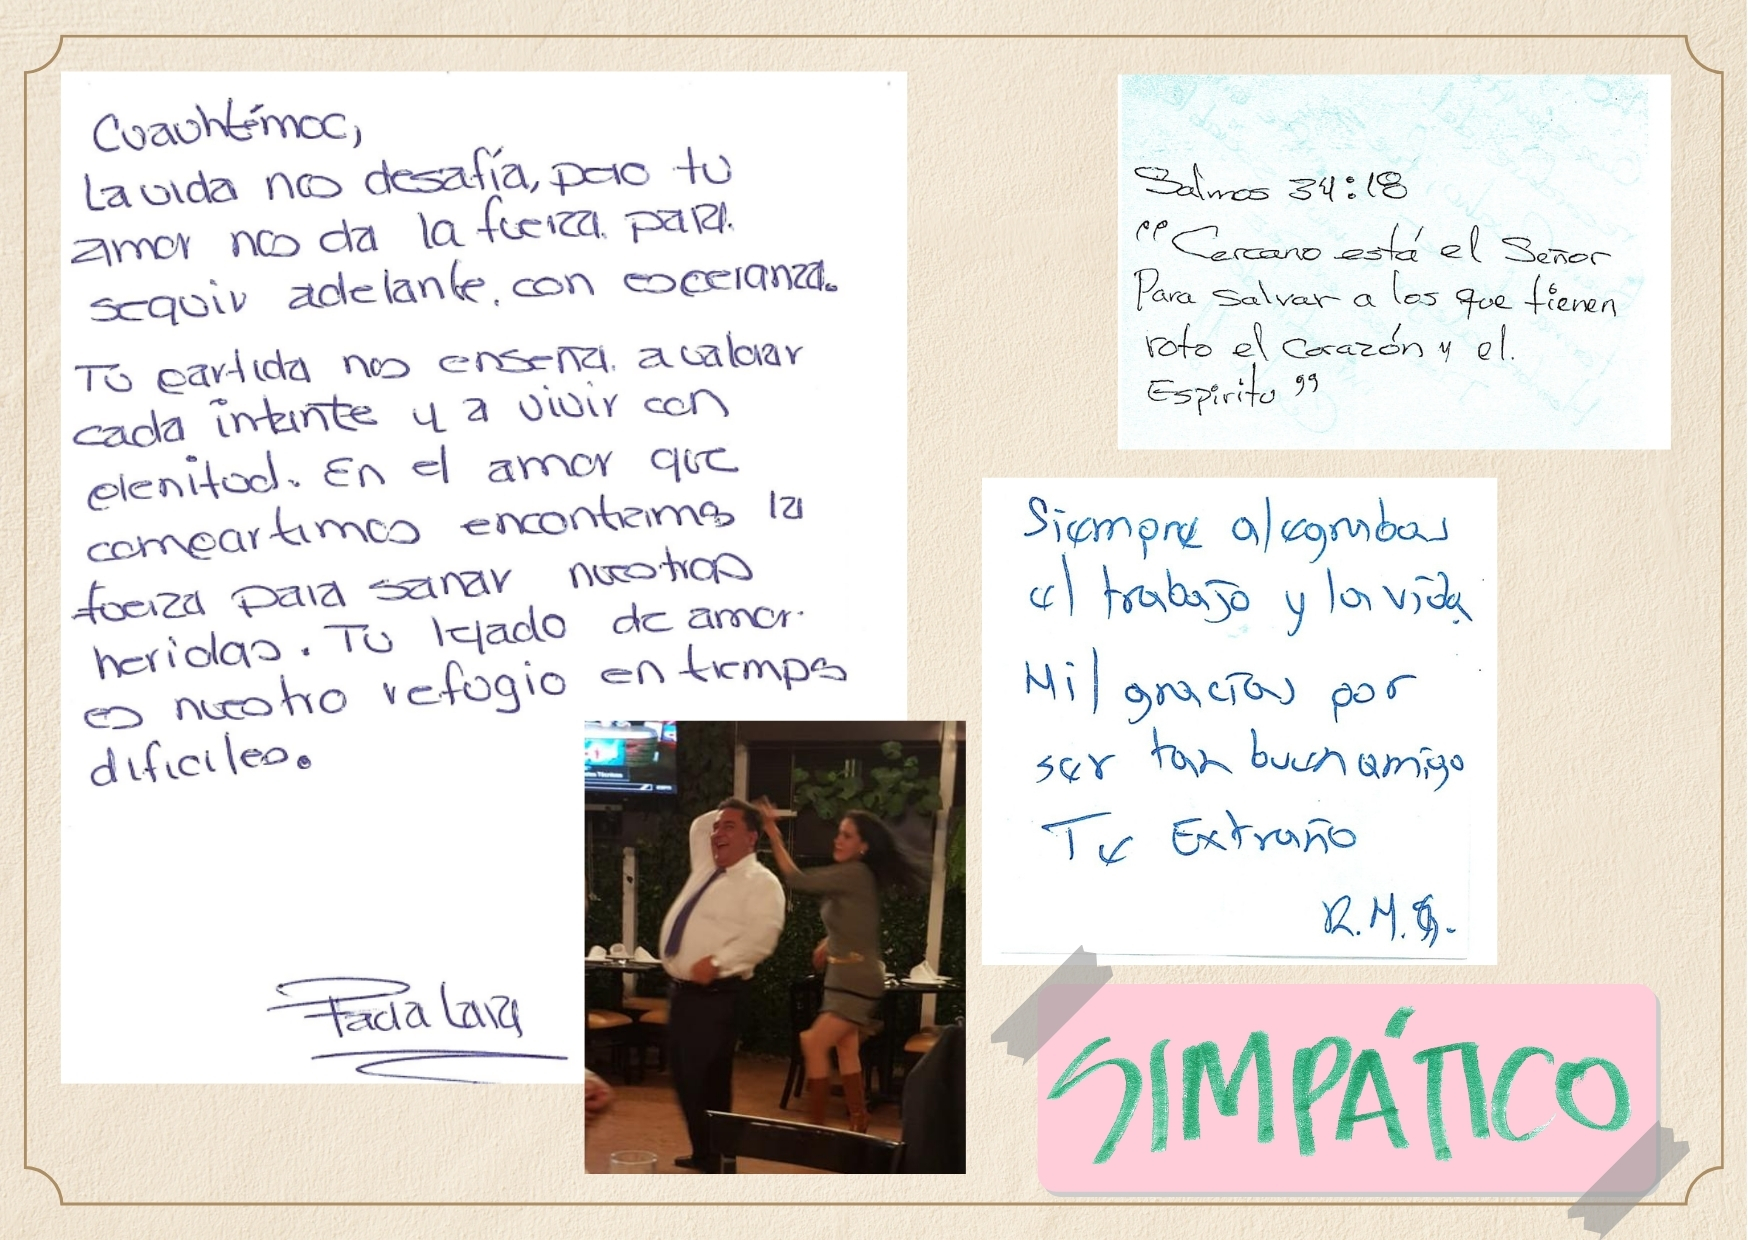 Cuauhtémoc,
La vida nos desafía, pero tu
amor nos da la fuerza para
seguir adelante, con esperanza.
Tu partida nos enseña a valorar
cada instante y a vivir con
plenitud. En el amor que
compartimos encontramos la
fuerza para sanar nuestras
heridas. Tu legado de amor
es nuestro refugio en tiempos
dificiles.
Lara
Salmos 34:18
"Cercano está el Señor
Para salvar a los que tienen
roto el Corazón y el
Espiritu"
Siempre alegrabas
el trabajo y la vida
Mil gracias por
ser tan buen amigo
Te Extraño
R.M.G.
SIMPÁTICO